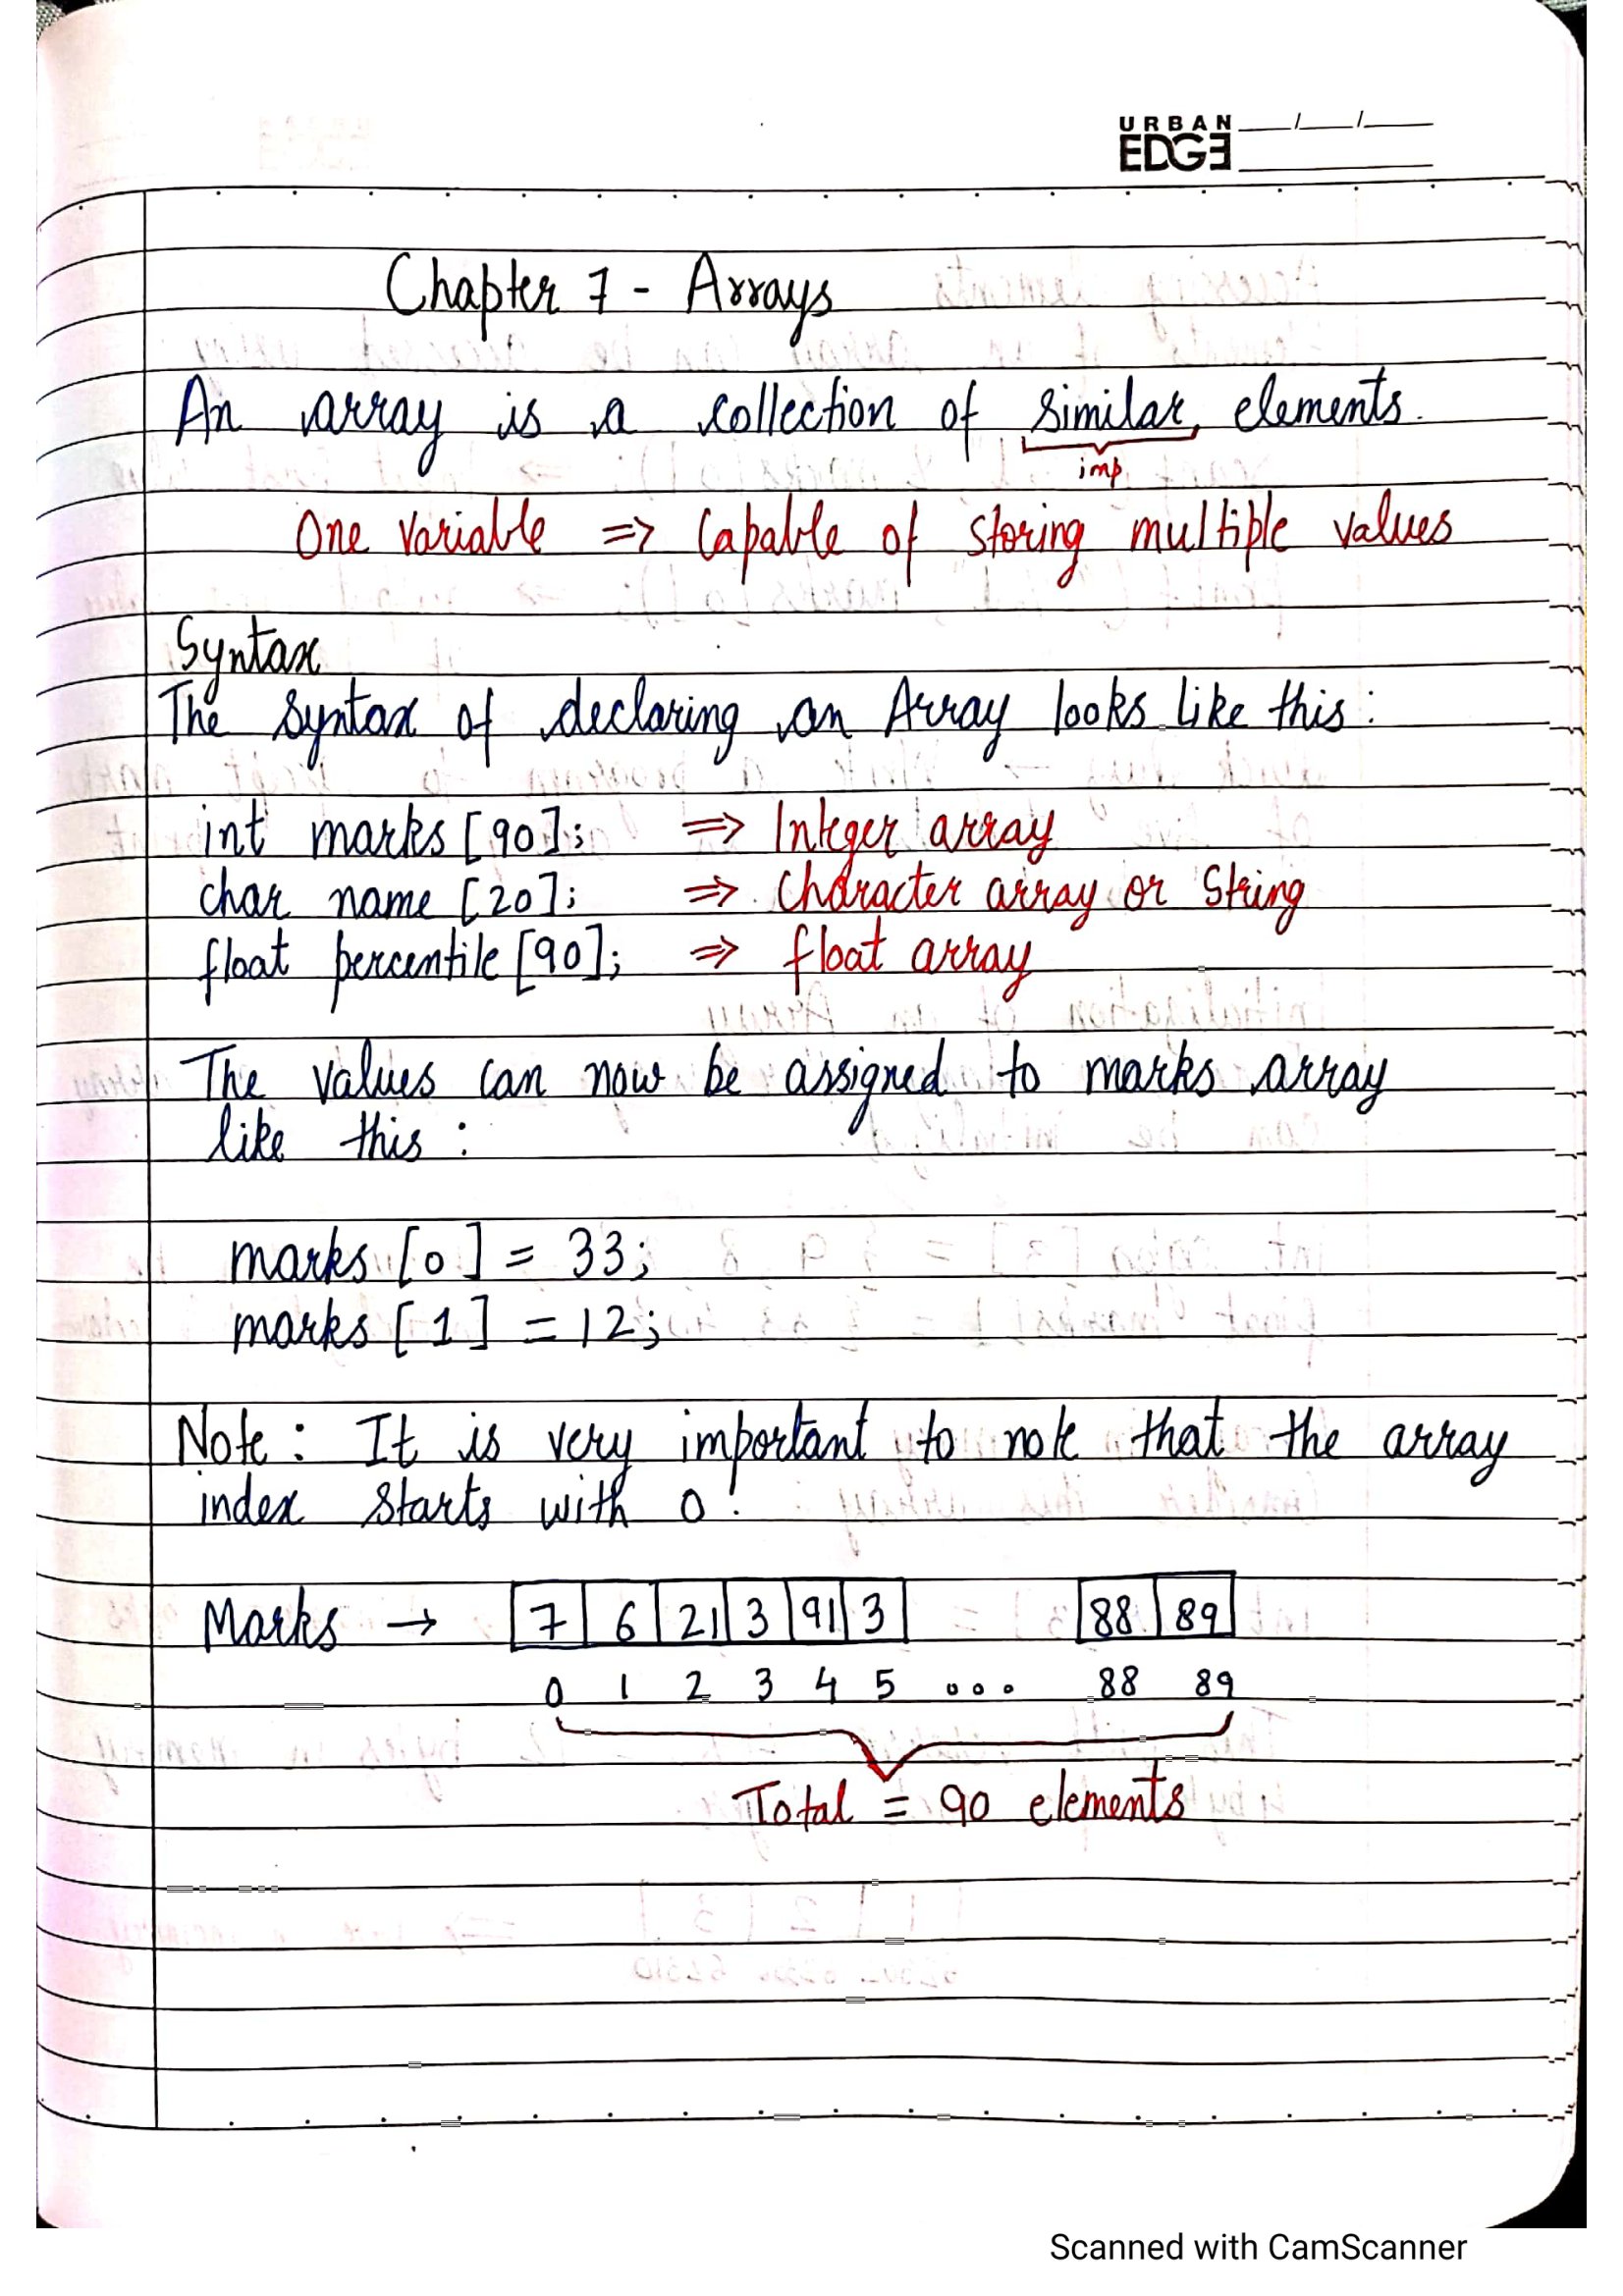 URBAN
EDGE
Chapter 7 - Arrays
An array is a collection of similar elements.
imp
One variable => Capable of storing multiple values
Syntax
The syntax of declaring an Array looks like this:
int marks [90]; => Integer array
char name [20]; => Character array or String
float percentile [90]; => float array
The values can now be assigned to marks array
like this :
marks [0] = 33;
marks [1] = 12;
Note : It is very important to note that the array
index starts with 0!
Marks → 7 6 21 3 91 3 88 89
0 1 2 3 4 5 ... 88 89
Total = 90 elements
Scanned with CamScanner